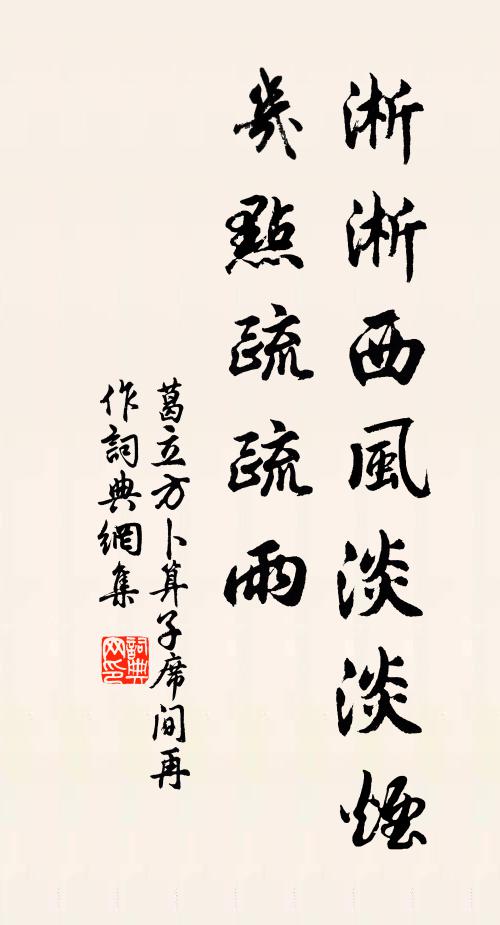 淅淅西風淡淡煙
幾點疏疏雨
葛立方卜算子席間再
作詞典網集
詞典
网印